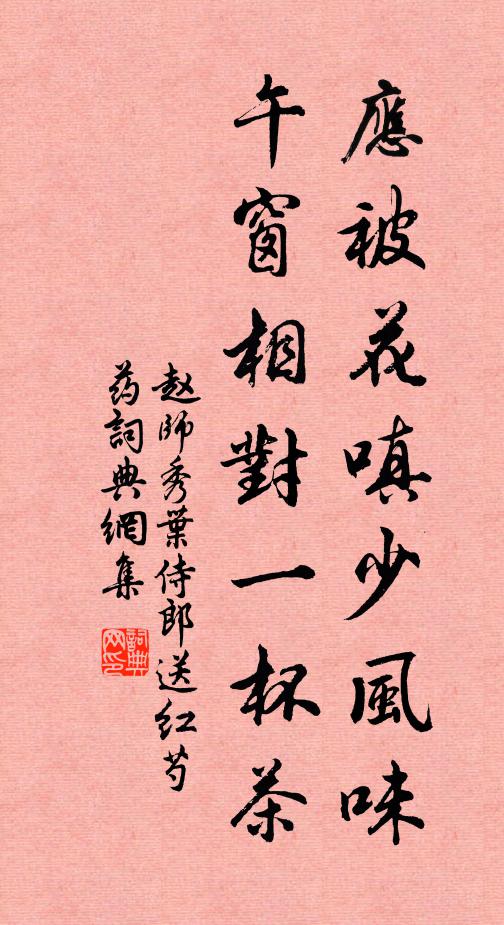 應被花嗔少風味
午窗相對一杯茶
赵師秀葉侍郎送红芍
药詞典網集
詞典网印